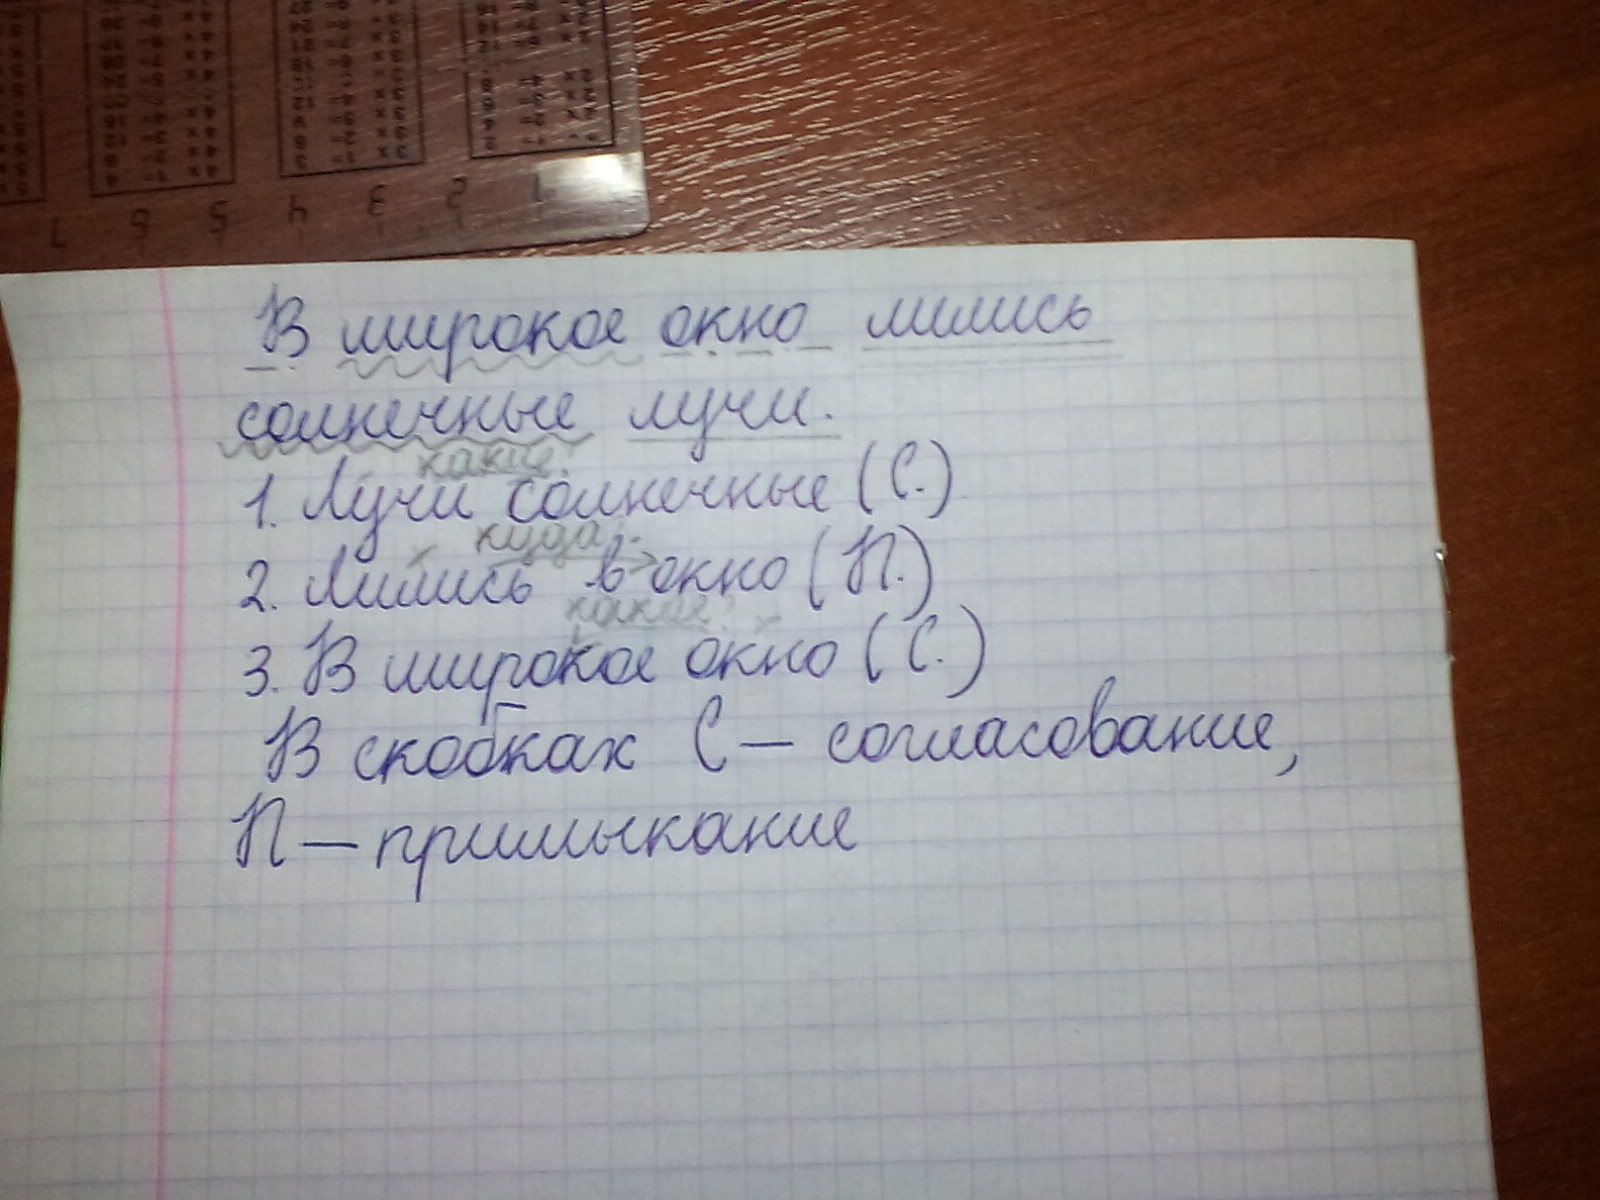 1 2 3 4 5 6 7
В широкое окно лились
солнечные лучи.
какие?
1. Лучи солнечные (С.)
куда?
2. Лились в окно (П.)
какое?
3. В широкое окно (С.)
В скобках С — согласование,
П — примыкание